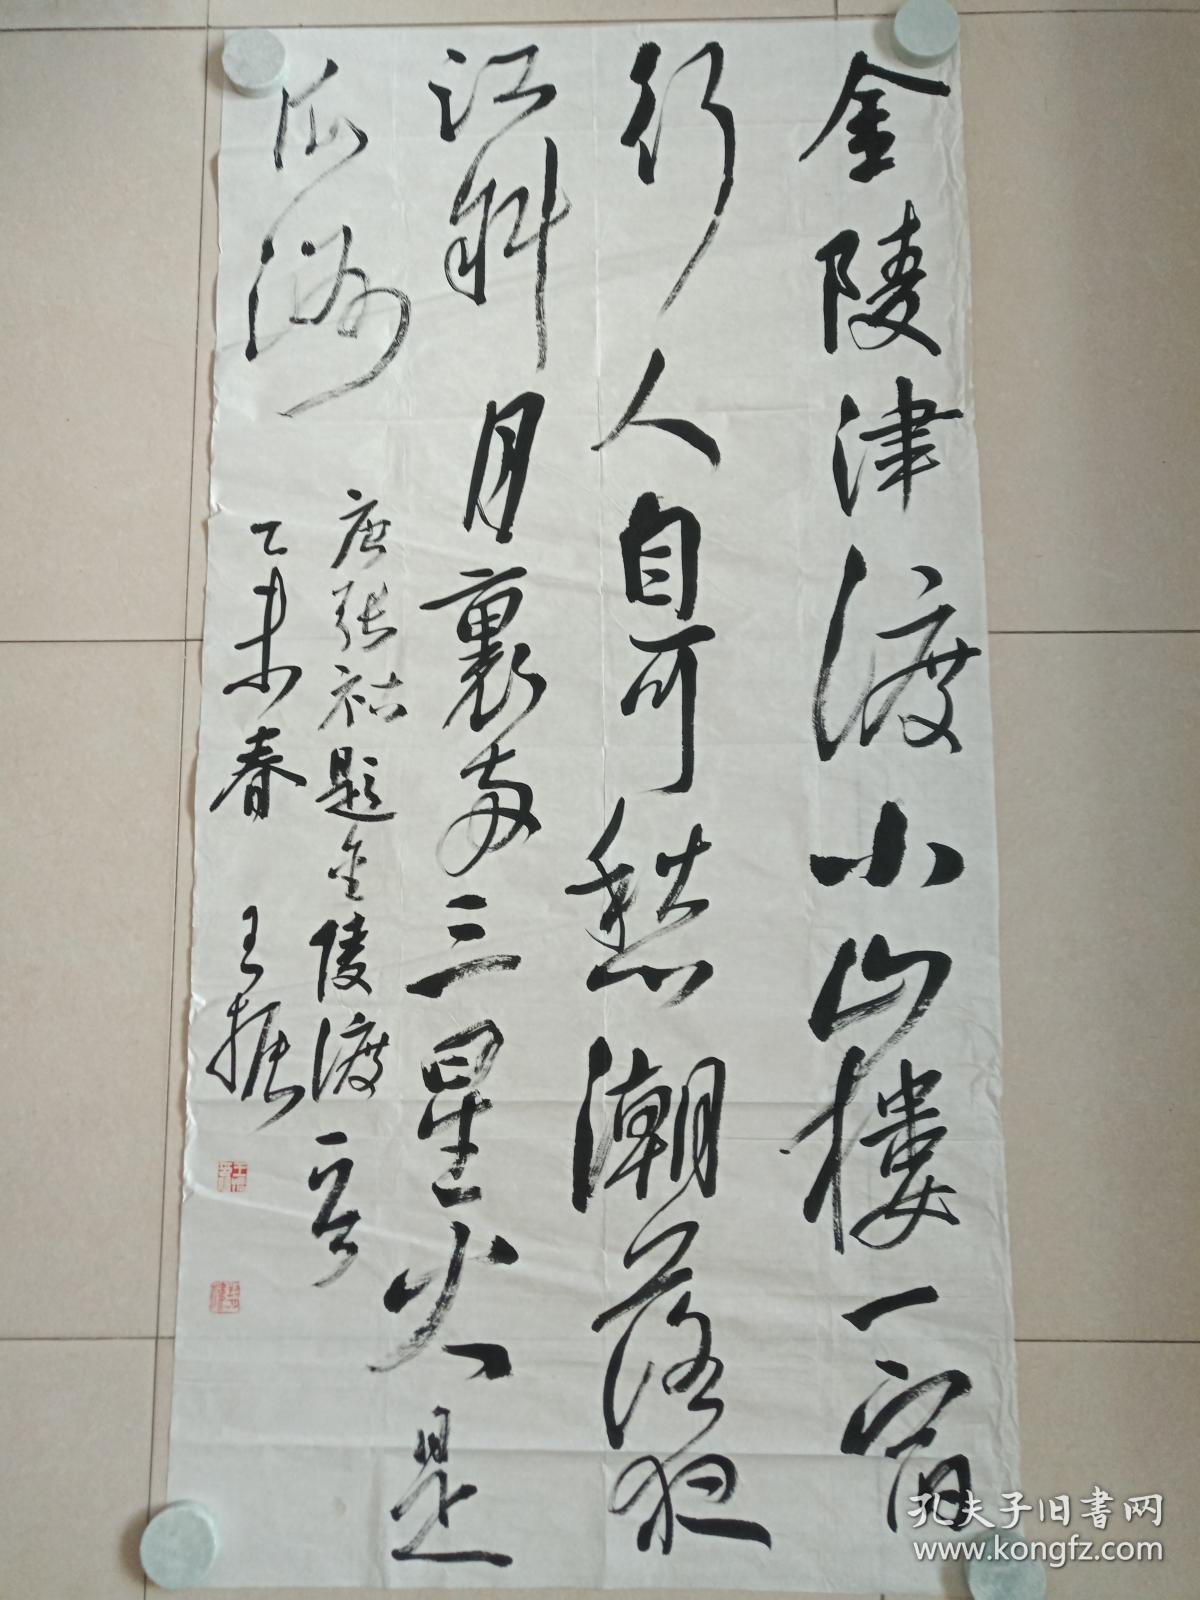 金陵津渡小山樓一宿
行人自可愁潮落夜
江斜月裏两三星火是
瓜洲
唐張祜題金陵渡一首
乙未春 王振
孔夫子旧書网
www.kongfz.com